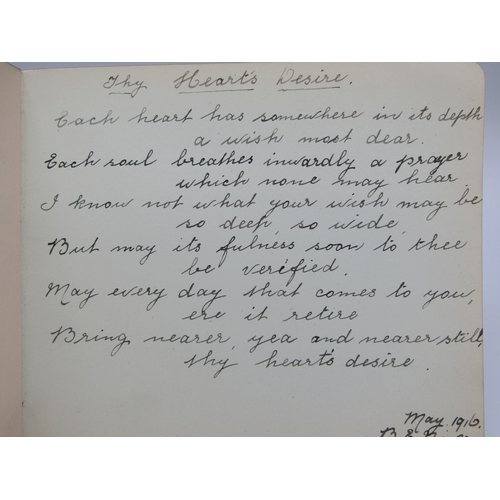 Thy Heart's Desire.
Each heart has somewhere in its depth
a wish most dear.
Each soul breathes inwardly a prayer
which none may hear
I know not what your wish may be
so deep, so wide,
But may its fulness soon to thee
be verified.
May every day that comes to you,
ere it retire
Bring nearer, yea and nearer still,
thy heart's desire.
May 1916.